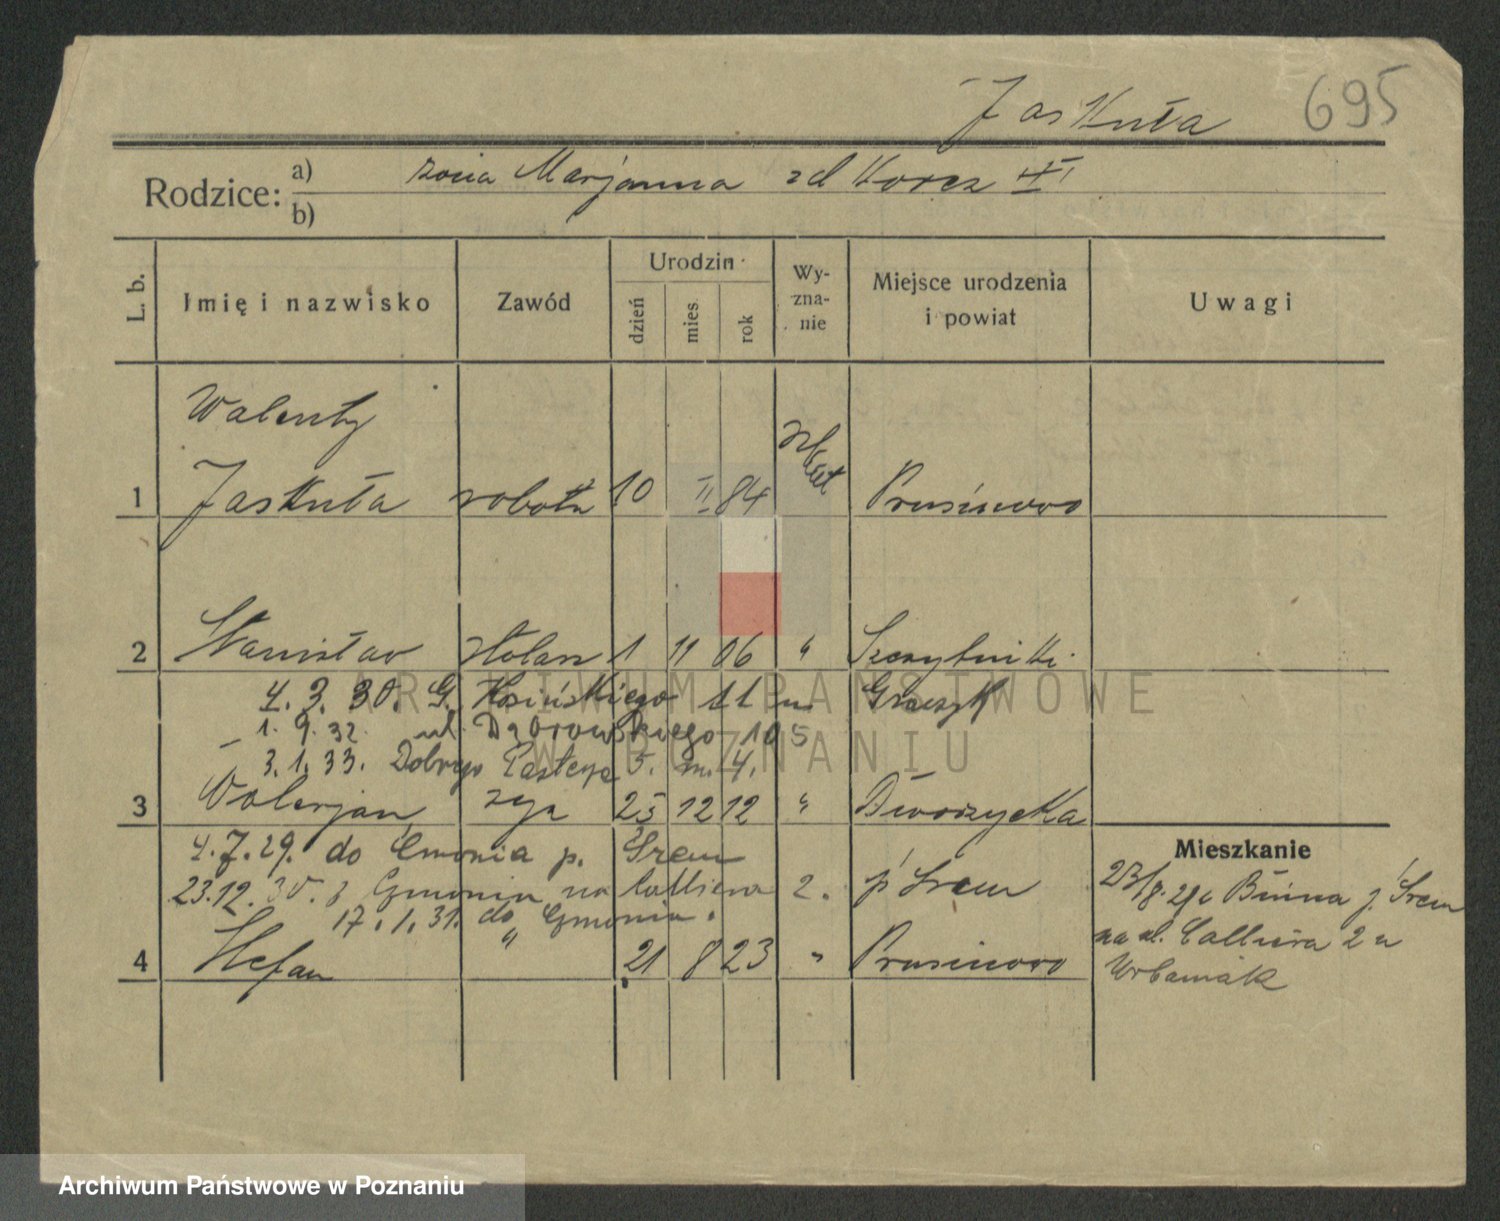 Jaskuła 695
Rodzice: a) żona Marjanna zd Korcz
b)
L. b. Imię i nazwisko Zawód Urodzin dzień mies rok Wy-zna-nie Miejsce urodzenia i powiat Uwagi
Walenty
1 Jaskuła robotn 10 II 84 Prusinowo
2 Stanisław stolarz 1 11 06 " Szczytniki
4. 3. 30. G. Kosińskiego 11 m.
1. 9. 32. ul. Dąbrowskiego 105
3. 1. 33. Dobrego Pasterza 5. m. 4.
3 Walerjan 25 12 12 " Dworzycka
Mieszkanie
4. 7. 29. do Gmonia p. Śrem
23/8. 29 z Bnina p. Śrem
23.12.30 z Gmonia na Calliera 2. p. Śrem
na ul. Calliera 2 u
17. 1. 31. do " Gmonia.
Urbaniak
4 Stefan 21 8 23 " Prusinowo
ARCHIWUM PAŃSTWOWE
W POZNANIU
Archiwum Państwowe w Poznaniu